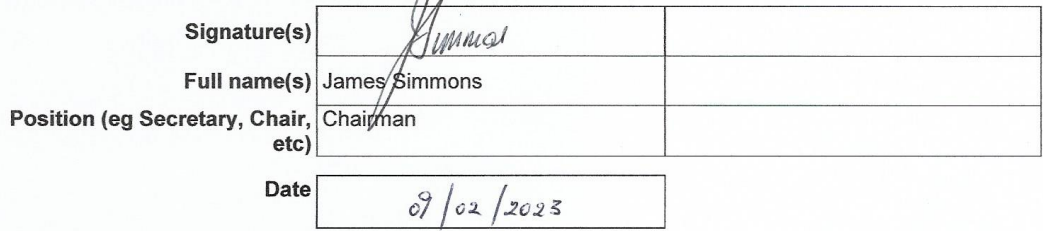 Signature(s) Simmons
Full name(s) James Simmons
Position (eg Secretary, Chair, Chairman
etc)
Date 09/02/2023